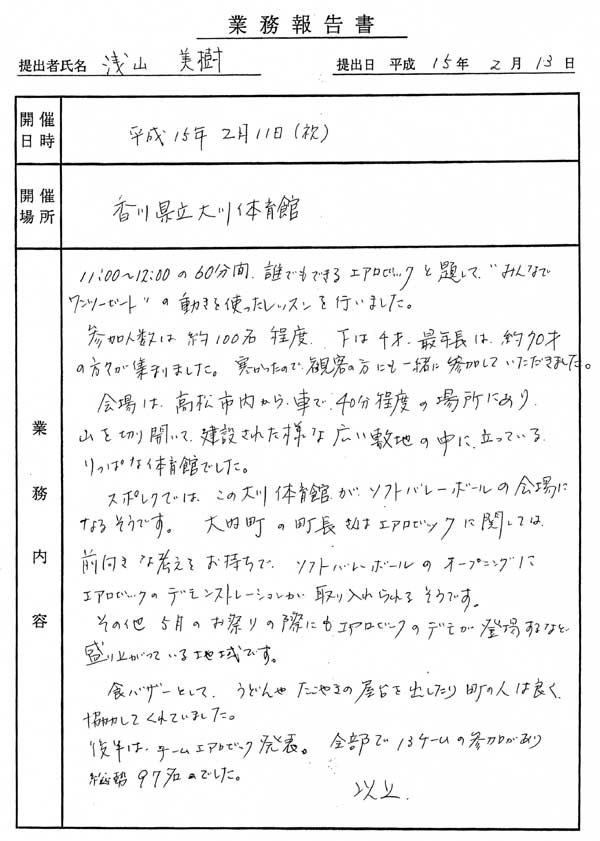 業務報告書
提出者氏名 浅山 美樹 提出日 平成 15年 2月 13日
開催日時 平成15年 2月11日(祝)
開催場所 香川県立大川体育館
業務内容
11:00~12:00の60分間、誰でもできるエアロビックと題して、"みんなで
ワンツービート"の動きを使ったレッスンを行いました。
参加人数は約100名程度、下は4才、最年長は、約70才
の方々が集まりました。寒かったので、観客の方にも一緒に参加していただきました。
会場は、高松市内から、車で、40分程度の場所にあり、
山を切り開いて、建設された様な広い敷地の中に、立っている、
りっぱな体育館でした。
スポレクでは、この大川体育館が、ソフトバレーボールの会場に
なるそうです。大内町の町長さんはエアロビックに関しては、
前向きな考えをお持ちで、ソフトバレーボールのオープニングに
エアロビックのデモンストレーションが取り入れられるそうです。
その他5月のお祭りの際にもエアロビックのデモが登場するなど
盛り上がっている地域です。
食バザーとして、うどんやたこやきの屋台を出したり町の人は良く、
協力してくれていました。
後半は、チームエアロビック発表。全部で13チームの参加があり
総勢97名でした。
以上.